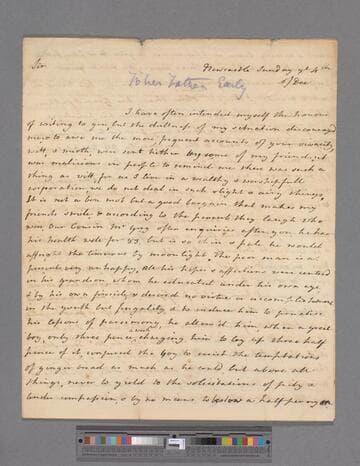 Sir
Newcastle Sunday ye 4th
of Dec
To her Father Early
I have often intended myself the honour
of writing to you, but the dullness of my situation discouraged
me to me the more frequent accounts of your vivacity
wit, & mirth, were sent hither by some of my friends; it
was malicious in people to remind me there was such a
thing as wit for as I live in a wealthy & worshipfull
corporation we do not deal in such slight & airy things,
It is not a bon mot but a good bargain that makes my
friends smile, & according to the pence they laugh who
win. Our Cousin Mr Roy often enquires after you, he has
his health well for 83, but is so thin & pale he would
affright the timorous by moonlight. The poor man is at
present very unhappy, all his hopes & affections were centred
in his grandson, whom he educated under his own eye,
& by his own precepts, & desired no virtue or accomplishment
in the youth but frugality, & to induce him to practise
his lessons of parsimony, he allow'd him, when a great
boy, only three pence a week, charging him to lay up three half
pence of it, conjured the boy to resist the temptations
of ginger bread as much as he could but above all
things, never to yield to the solicitations of pity &
tender compassion, & by no means to bestow a half penny on